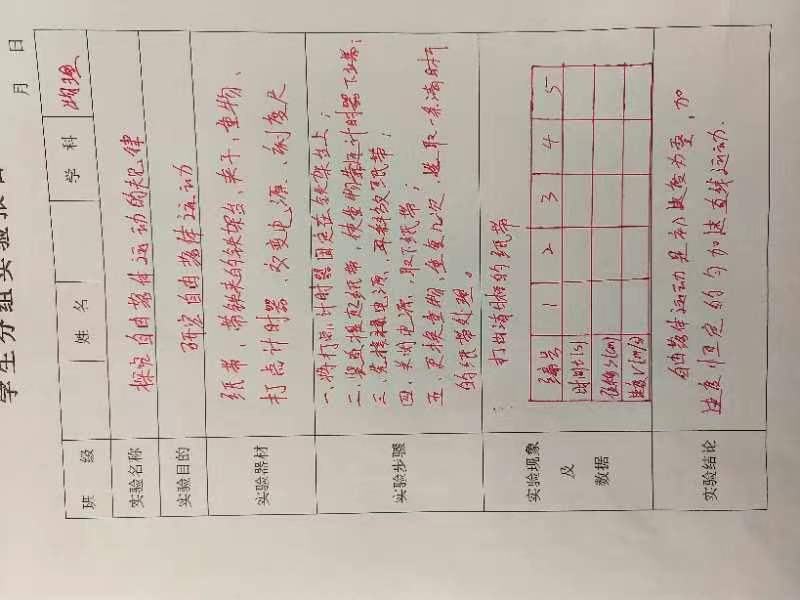 学生分组实验报告
月 日
班 级 姓 名 学 科 物理
实验名称 探究自由落体运动的规律
实验目的 研究自由落体运动
实验器材 纸带、带铁夹的铁架台、夹子、重物、
打点计时器、交变电源、刻度尺
实验步骤
一、将打点计时器固定在铁架台上;
二、竖直提起纸带,使重物靠近计时器下端;
三、先接通电源,再释放纸带;
四、关闭电源,取下纸带;
五、更换重物,重复几次,选取一条清晰
的纸带处理。
实验现象
及
数据
打出清晰的纸带
编号 1 2 3 4 5
时间t(s)
位移x(m)
速度v(m/s)
实验结论 自由落体运动是初速度为零,加
速度恒定的匀加速直线运动.